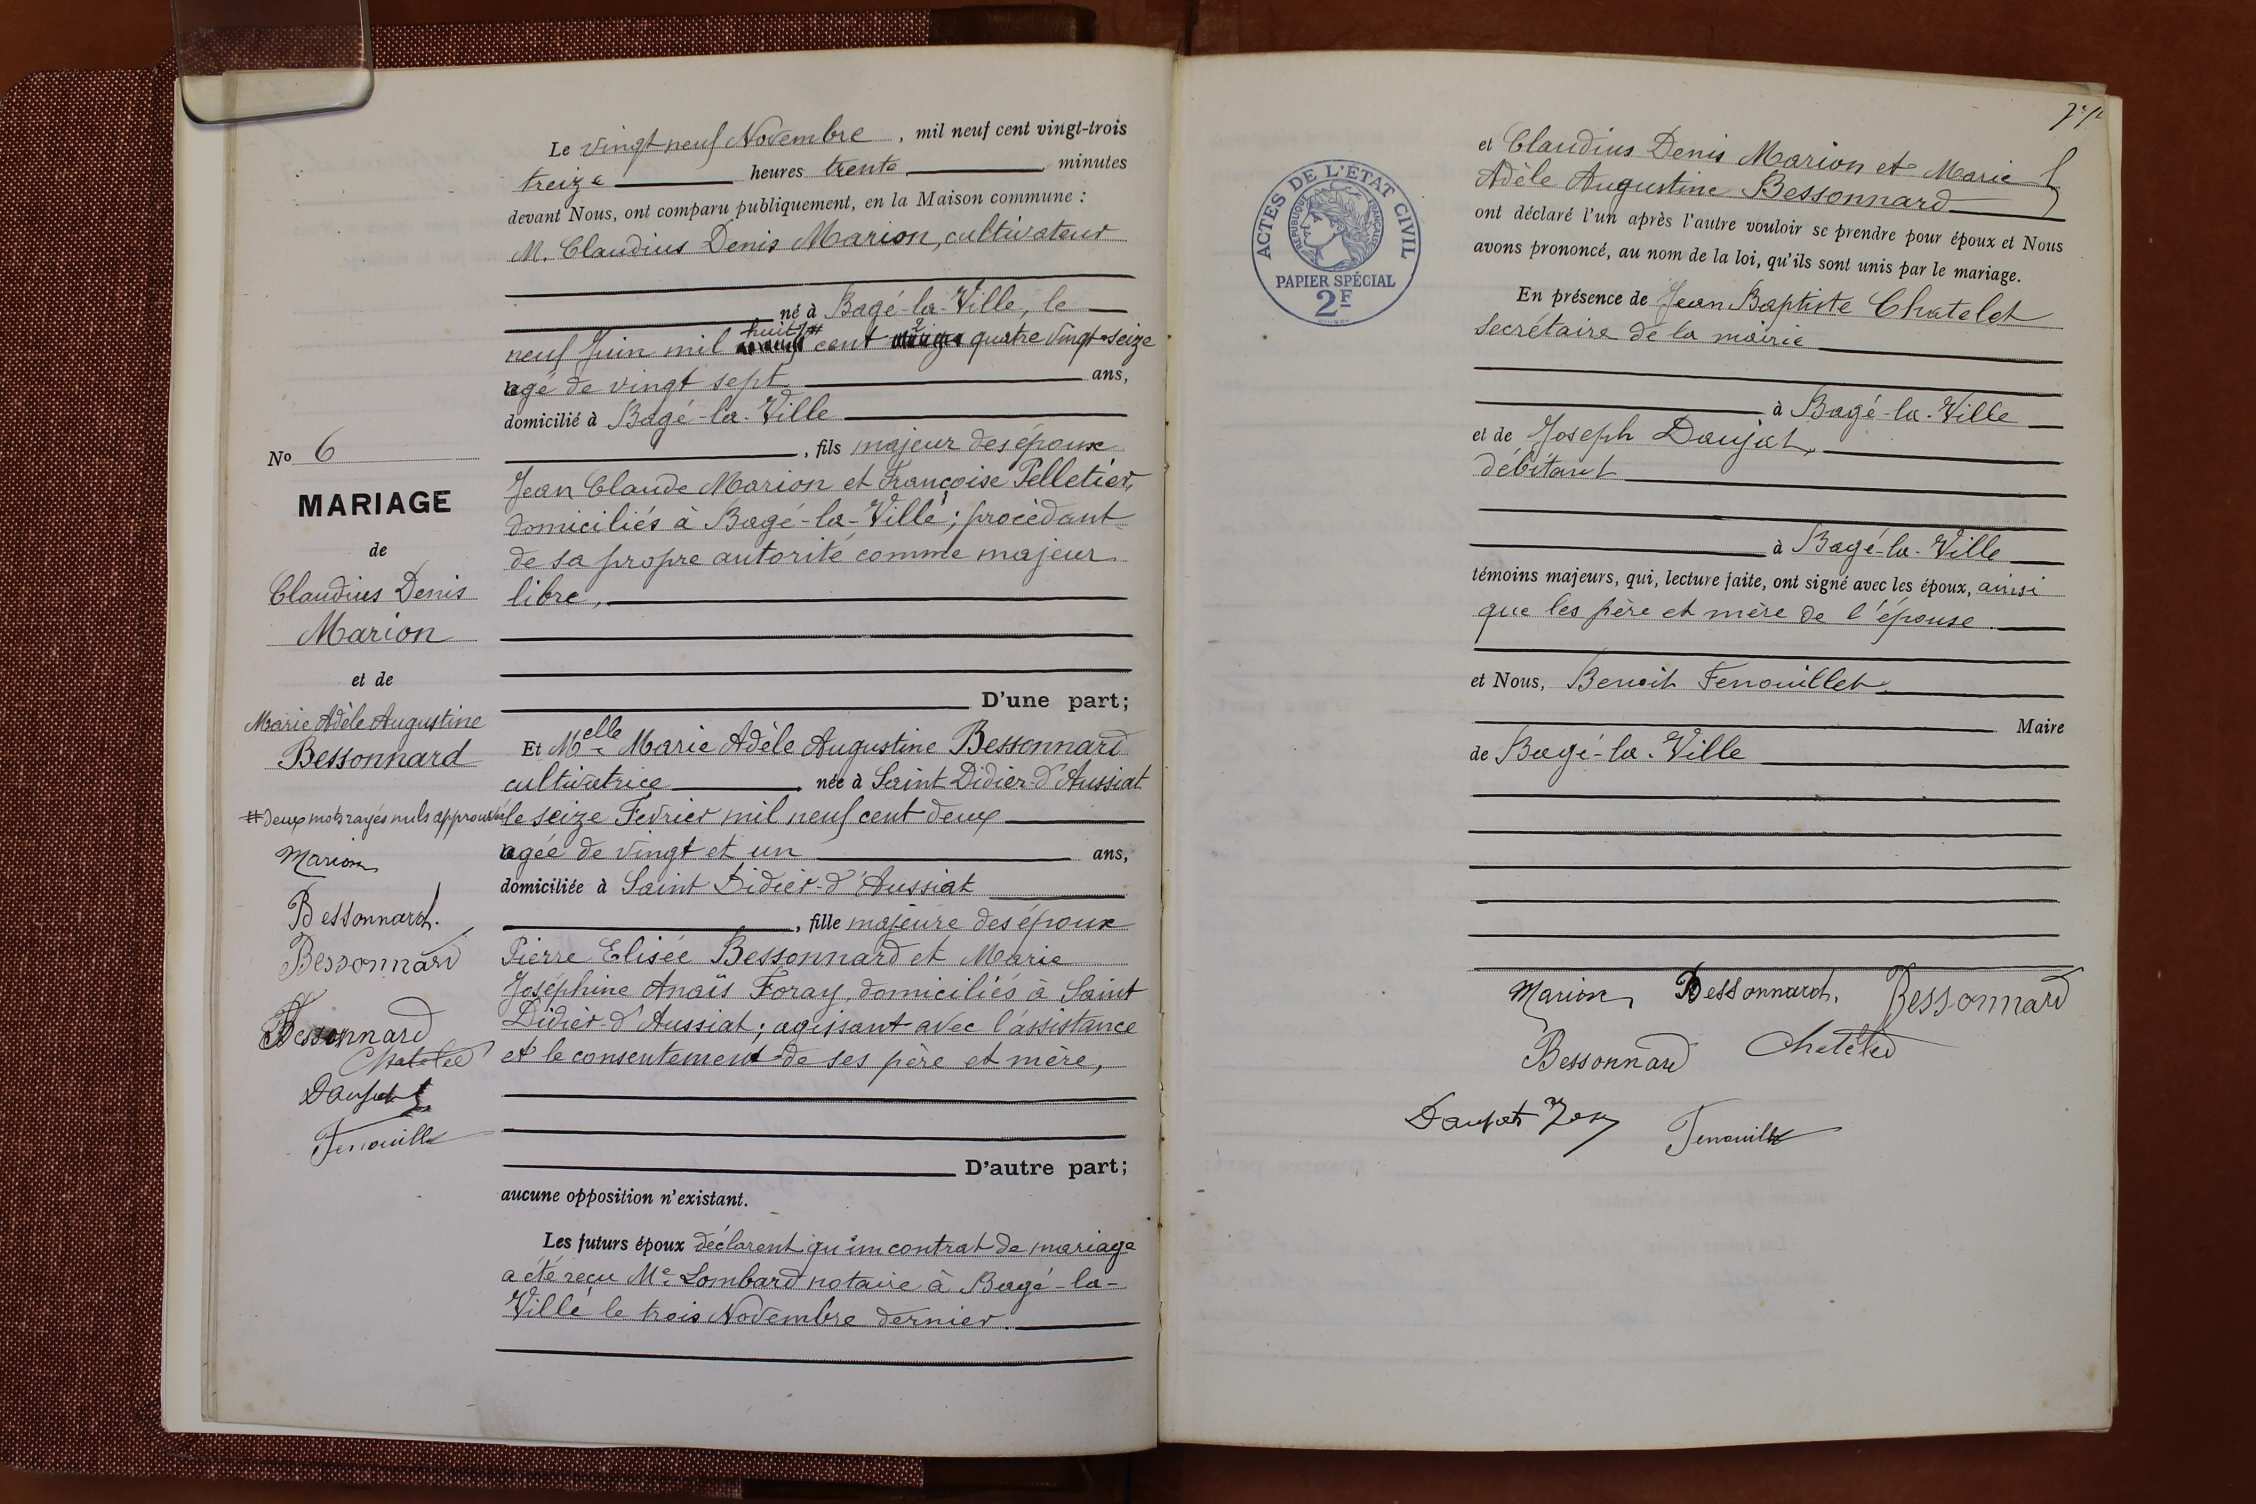 Le vingt neuf Novembre, mil neuf cent vingt-trois
treize heures trente minutes
devant Nous, ont comparu publiquement, en la Maison commune :
M. Claudius Denis Marion, cultivateur
né à Bagé-la-Ville, le
huit #
neuf Juin mil cent quatre vingt seize
agé de vingt sept ans,
domicilié à Bagé-la-Ville
, fils majeur des époux
Jean Claude Marion et Françoise Pelletier,
domiciliés à Bagé-la-Ville ; procédant
de sa propre autorité comme majeur
libre,
D'une part;
Et Melle Marie Adèle Augustine Bessonnard
cultivatrice, née à Saint Didier-d'Aussiat
le seize Fevrier mil neuf cent deux
agée de vingt et un ans,
domiciliée à Saint Didier-d'Aussiat
, fille majeure des époux
Pierre Elisée Bessonnard et Marie
Joséphine Anaïs Foray, domiciliés à Saint
Didier-d'Aussiat ; agissant avec l'assistance
et le consentement de ses père et mère,
D'autre part;
aucune opposition n'existant.
Les futurs époux déclarent qu'un contrat de mariage
a été reçu Me Lombard notaire à Bagé-la-
Ville le trois Novembre dernier.
No 6
MARIAGE
de
Claudius Denis
Marion
et de
Marie Adèle Augustine
Bessonnard
# deux mots rayés nuls approuvés
Marion
Bessonnard.
Bessonnard
Bessonnard
Chatelet
Daujat
Fenouillet
et Claudius Denis Marion et Marie
Adèle Augustine Bessonnard
ont déclaré l'un après l'autre vouloir se prendre pour époux et Nous
avons prononcé, au nom de la loi, qu'ils sont unis par le mariage.
En présence de Jean Baptiste Chatelet
secrétaire de la mairie
à Bagé-la-Ville
et de Joseph Daujat,
débitant
à Bagé-la-Ville
témoins majeurs, qui, lecture faite, ont signé avec les époux, ainsi
que les père et mère de l'épouse.
et Nous, Benoit Fenouillet,
Maire
de Bagé-la-Ville
Marion Bessonnard. Bessonnard
Bessonnard Chatelet
Daujat Fenouillet
ACTES DE L'ETAT CIVIL
REPUBLIQUE FRANÇAISE
PAPIER SPÉCIAL
2F